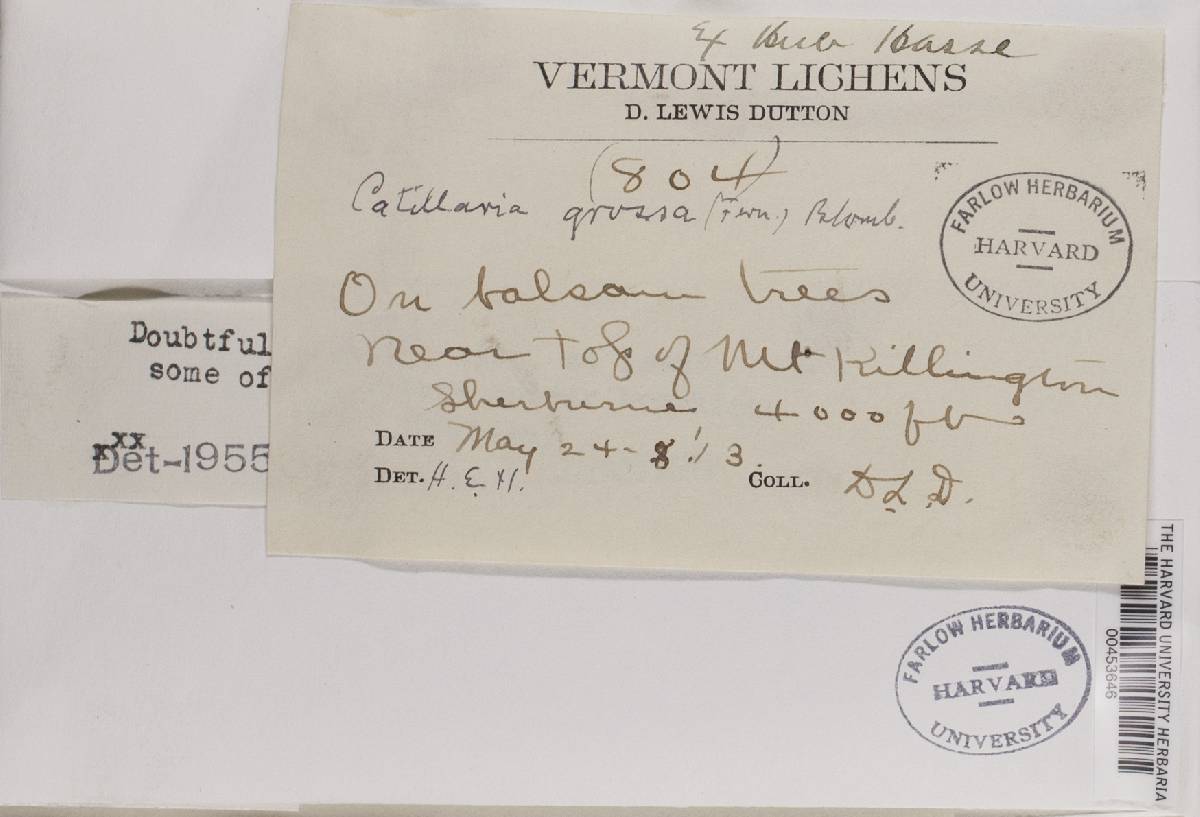 Ex Herb Hasse
VERMONT LICHENS
D. LEWIS DUTTON
(804)
Catillaria grossa (Pers.) Blomb.
On balsam trees
near top of Mt Killington
Sherburne 4000 ft
DATE May 24-8'13.
DET. H. E. H.
COLL. D L D.
FARLOW HERBARIUM
HARVARD
UNIVERSITY
Doubtful
some of
xxx
Det-1955
FARLOW HERBARIUM
HARVARD
UNIVERSITY
THE HARVARD UNIVERSITY HERBARIA
00453646